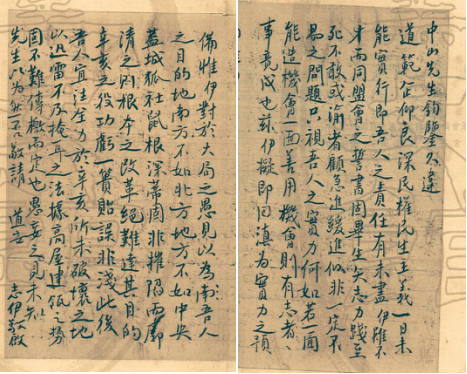 中山先生鈞鑒久違
道範企仰良深民權民生主義一日未
能實行即吾人之責任有未盡伊雖不
才而同盟會之誓書固畢生矢志力踐至
死不敢或渝者顧急進緩進似非一定不
易之問題只視吾人之實力何如若一面
能造機會一面善用機會則有志者、
事竟成也茲伊擬即回滇為實力之預
備惟伊對於大局之愚見以為南吾人
之目的地南方不如北方地方不如中央
蓋城狐社鼠根深蒂固非摧陷而廓
清之則根本之改革絕難達其目的
辛亥之役功虧一簣貽誤非淺此後
吾人宜注全力於辛亥所未破壞之地
以迅雷不及掩耳之法據高屋建瓴之勢
固不難傳檄而定也愚妄之見未知
先生以為然不敬請 道安
志伊敬啟